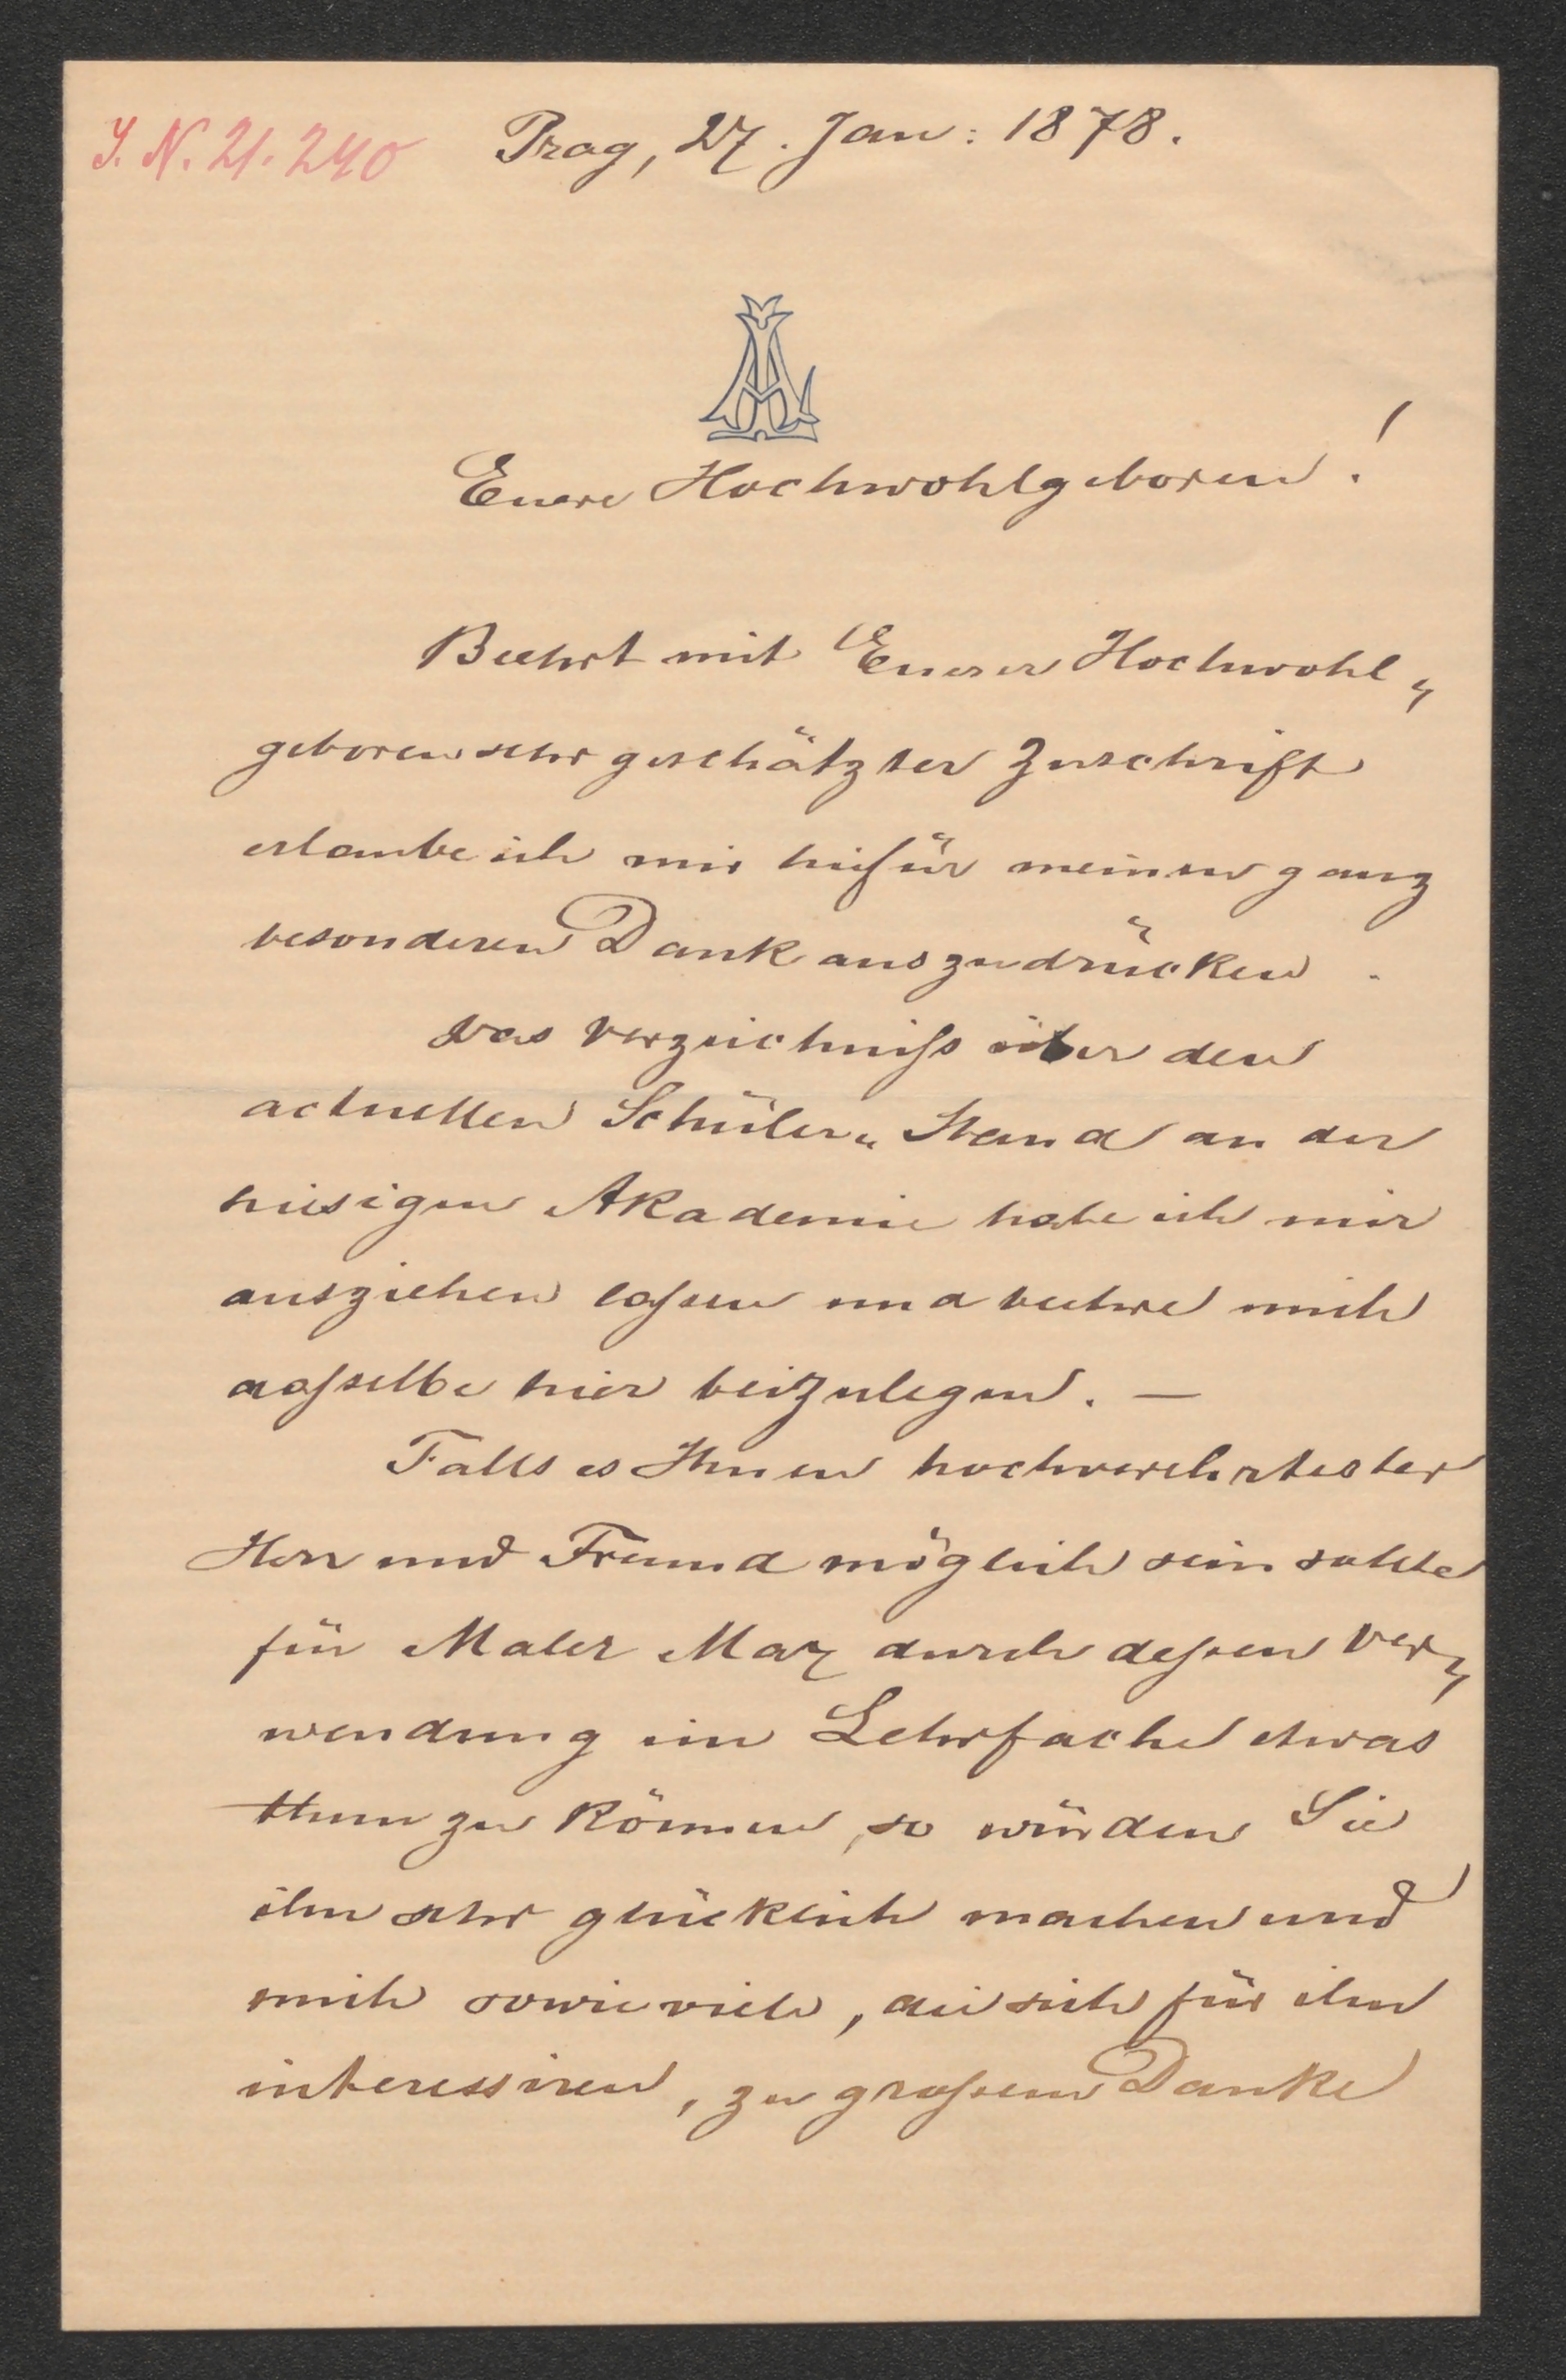 J. N. 21.240
Prag, 27. Jan: 1878.
AL
Euere Hochwohlgeboren!
Beehrt mit Euerer Hochwohl„
geboren sehr geschätzter Zuschrift
erlaube ich mir hiefür meinen ganz
besonderen Dank auszudrücken.
Das Verzeichniß über den
actuellen Schüler„Stand an der
hiesigen Akademie habe ich mir
ausziehen laßen und beehre mich
daßelbe hier beizulegen. —
Falls es Ihnen hochverehrtester
Herr und Freund möglich sein sollte
für Maler Max durch deßen Ver„
wendung im Lehrfache etwas
thun zu können, so würden Sie
ihn sehr glücklich machen und
mich sowie viele, die sich für ihn
interessiren, zu großem Danke